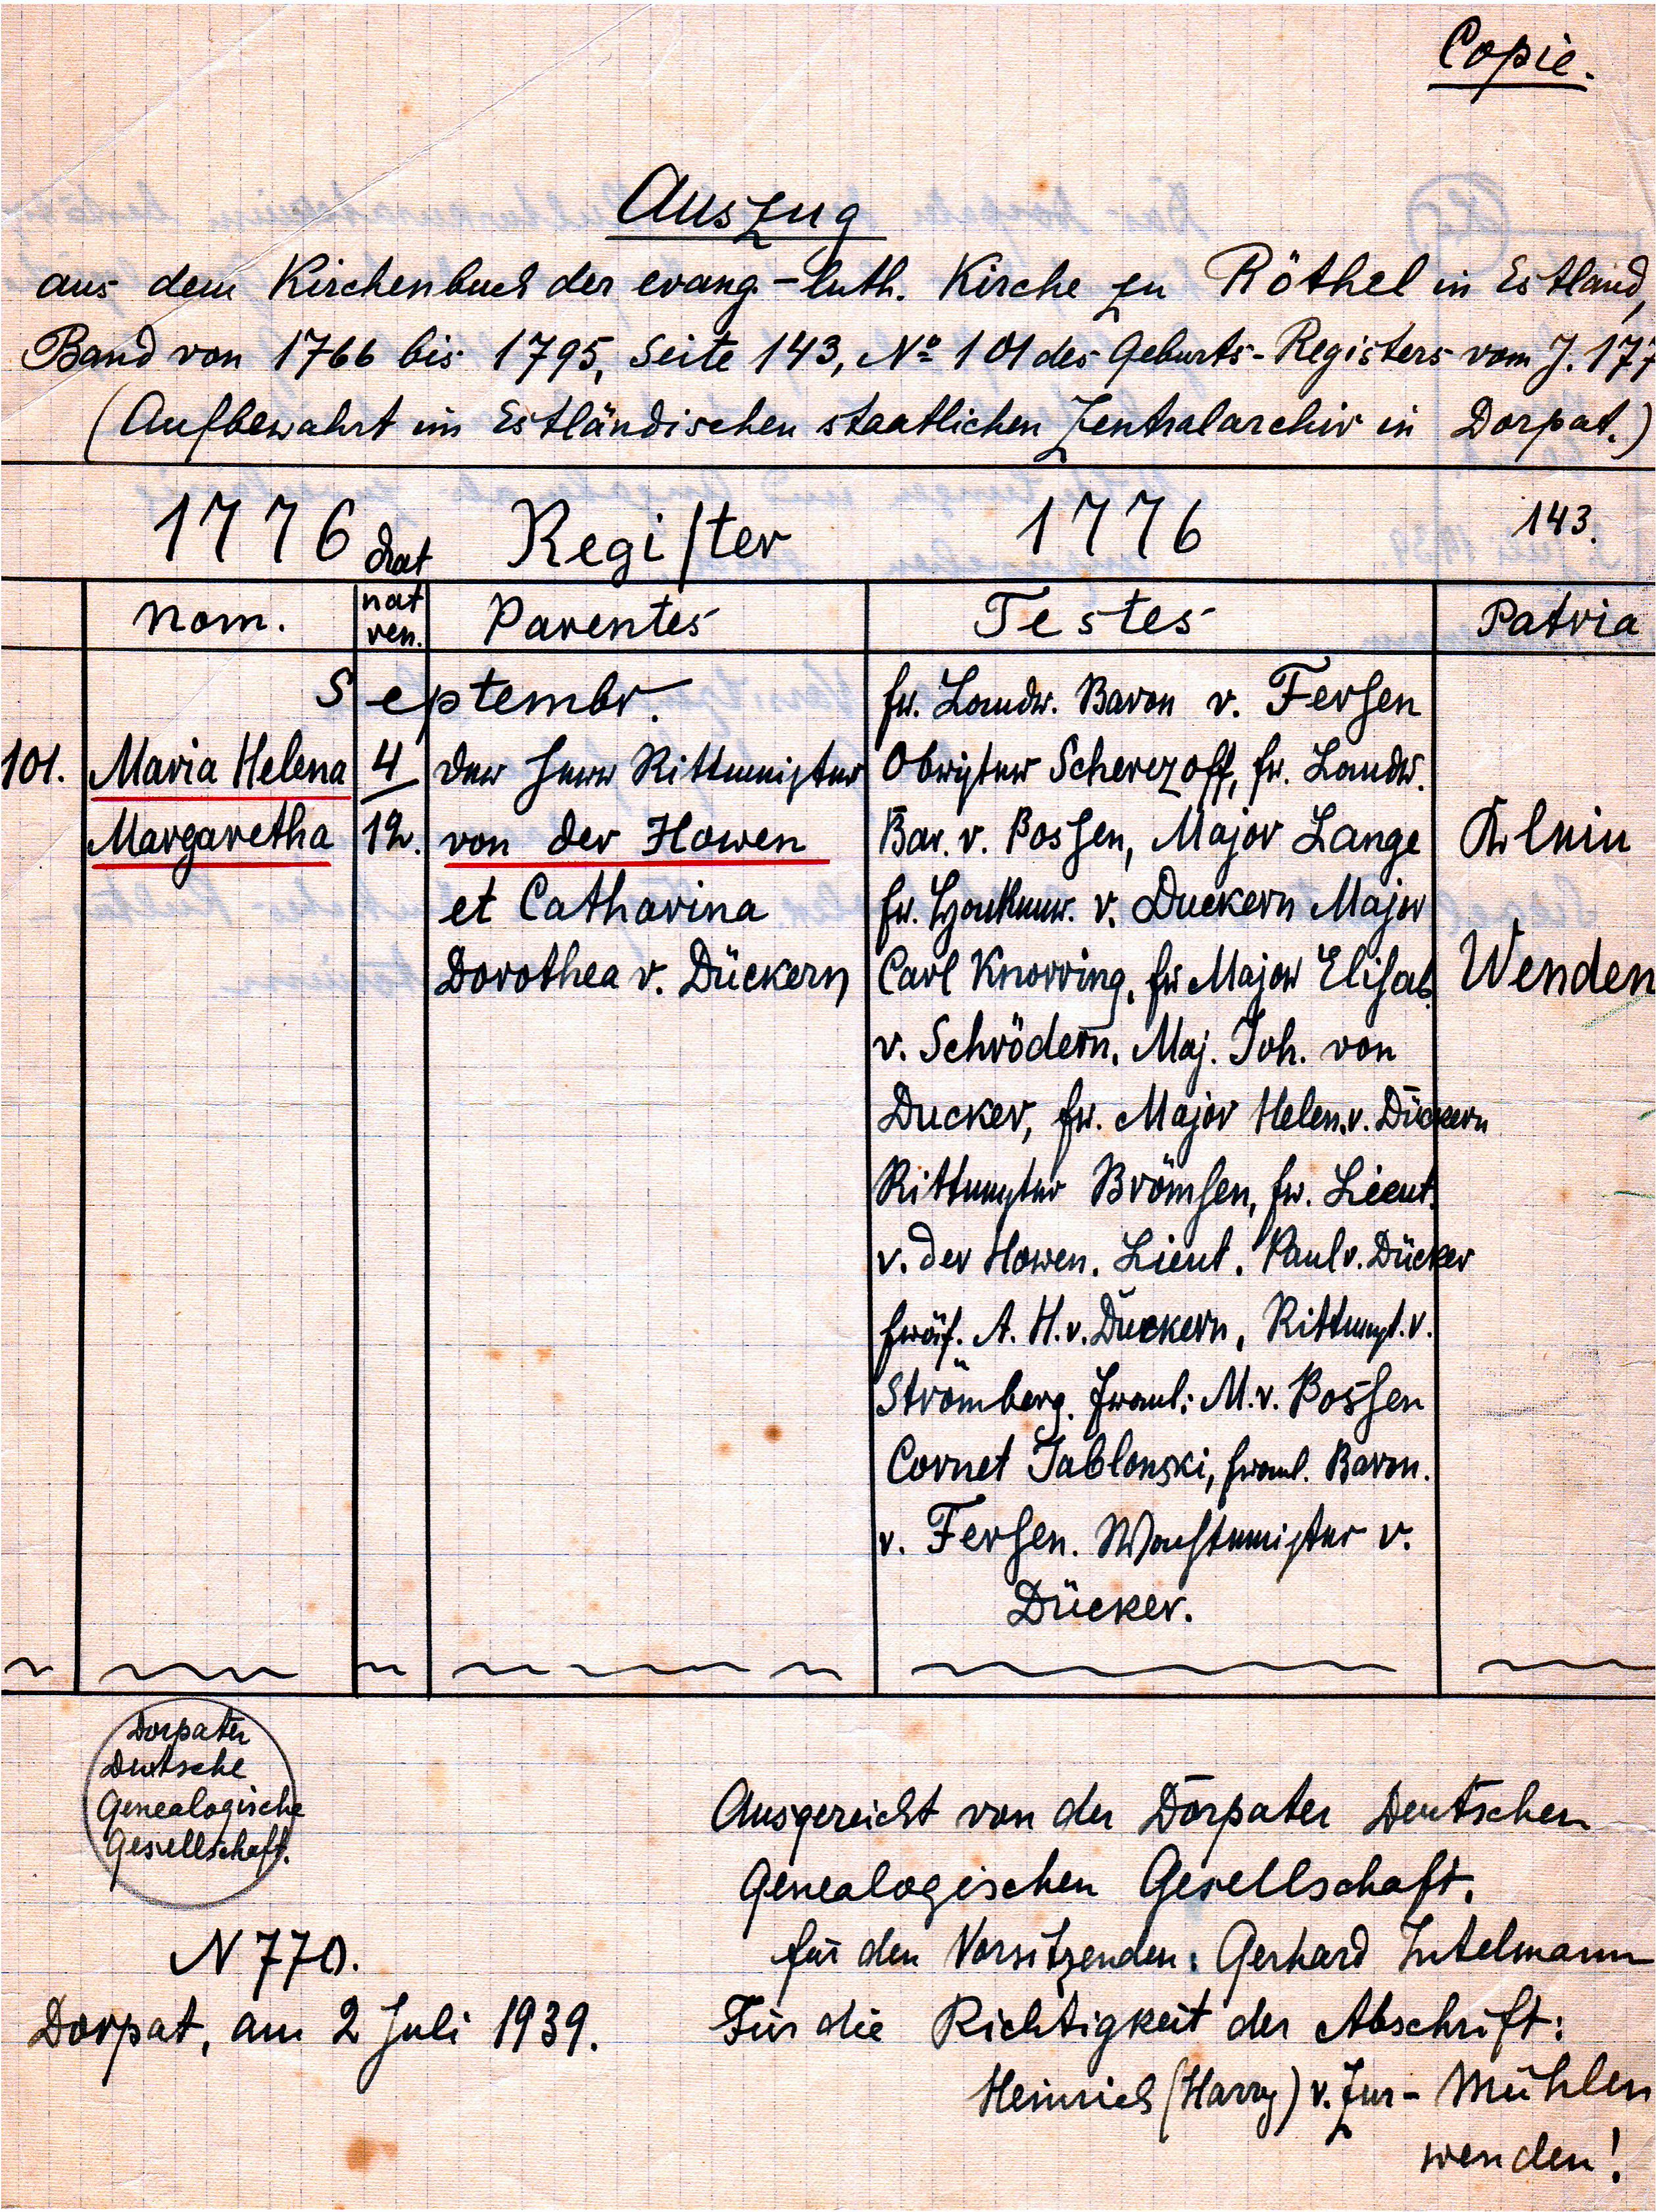 Copie.
Auszug
aus dem Kirchenbuch der evang-luth. Kirche zu Röthel in Estland,
Band von 1766 bis 1795, Seite 143, No 101 des Geburts-Registers vom J. 177
(Aufbewahrt im Estländischen staatlichen Zentralarchiv in Dorpat.)
1776 Register 1776 143.
nom. nat ren. Parentes Testes Patria
Septembr. fr. Landr. Baron v. Fersen
101. Maria Helena 4 der Herr Rittmeister Obrister Scherezoff, fr. Landr.
Margaretha 12. von der Howen Bar. v. Possen, Major Lange Klein
et Catharina fr. v. Duckern Major
Dorothea v. Dückern Carl Knorring, fr Major Elisab. Wenden
v. Schrödern, Maj. Joh. von
Ducker, fr. Major Helen. v. Dückern
Rittmeister Brömsen, fr. Lieut.
v. der Howen. Lieut. Paul v. Dücker
A. H. v. Dückern, Rittmst. v.
Strömberg. Fraul: M. v. Possen
Cornet Jablonski, fraul. Baron.
v. Fersen. Wachtmeister v.
Dücker.
Dorpater
Deutsche
Genealogische
Gesellschaft.
N 770.
Dorpat, am 2 Juli 1939.
Ausgereicht von der Dorpater Deutschen
Genealogischen Gesellschaft.
für den Vorsitzenden: Gerhard Intelmann
Für die Richtigkeit der Abschrift:
Heinrich (Harry) v. Zur-Mühlen
wenden!